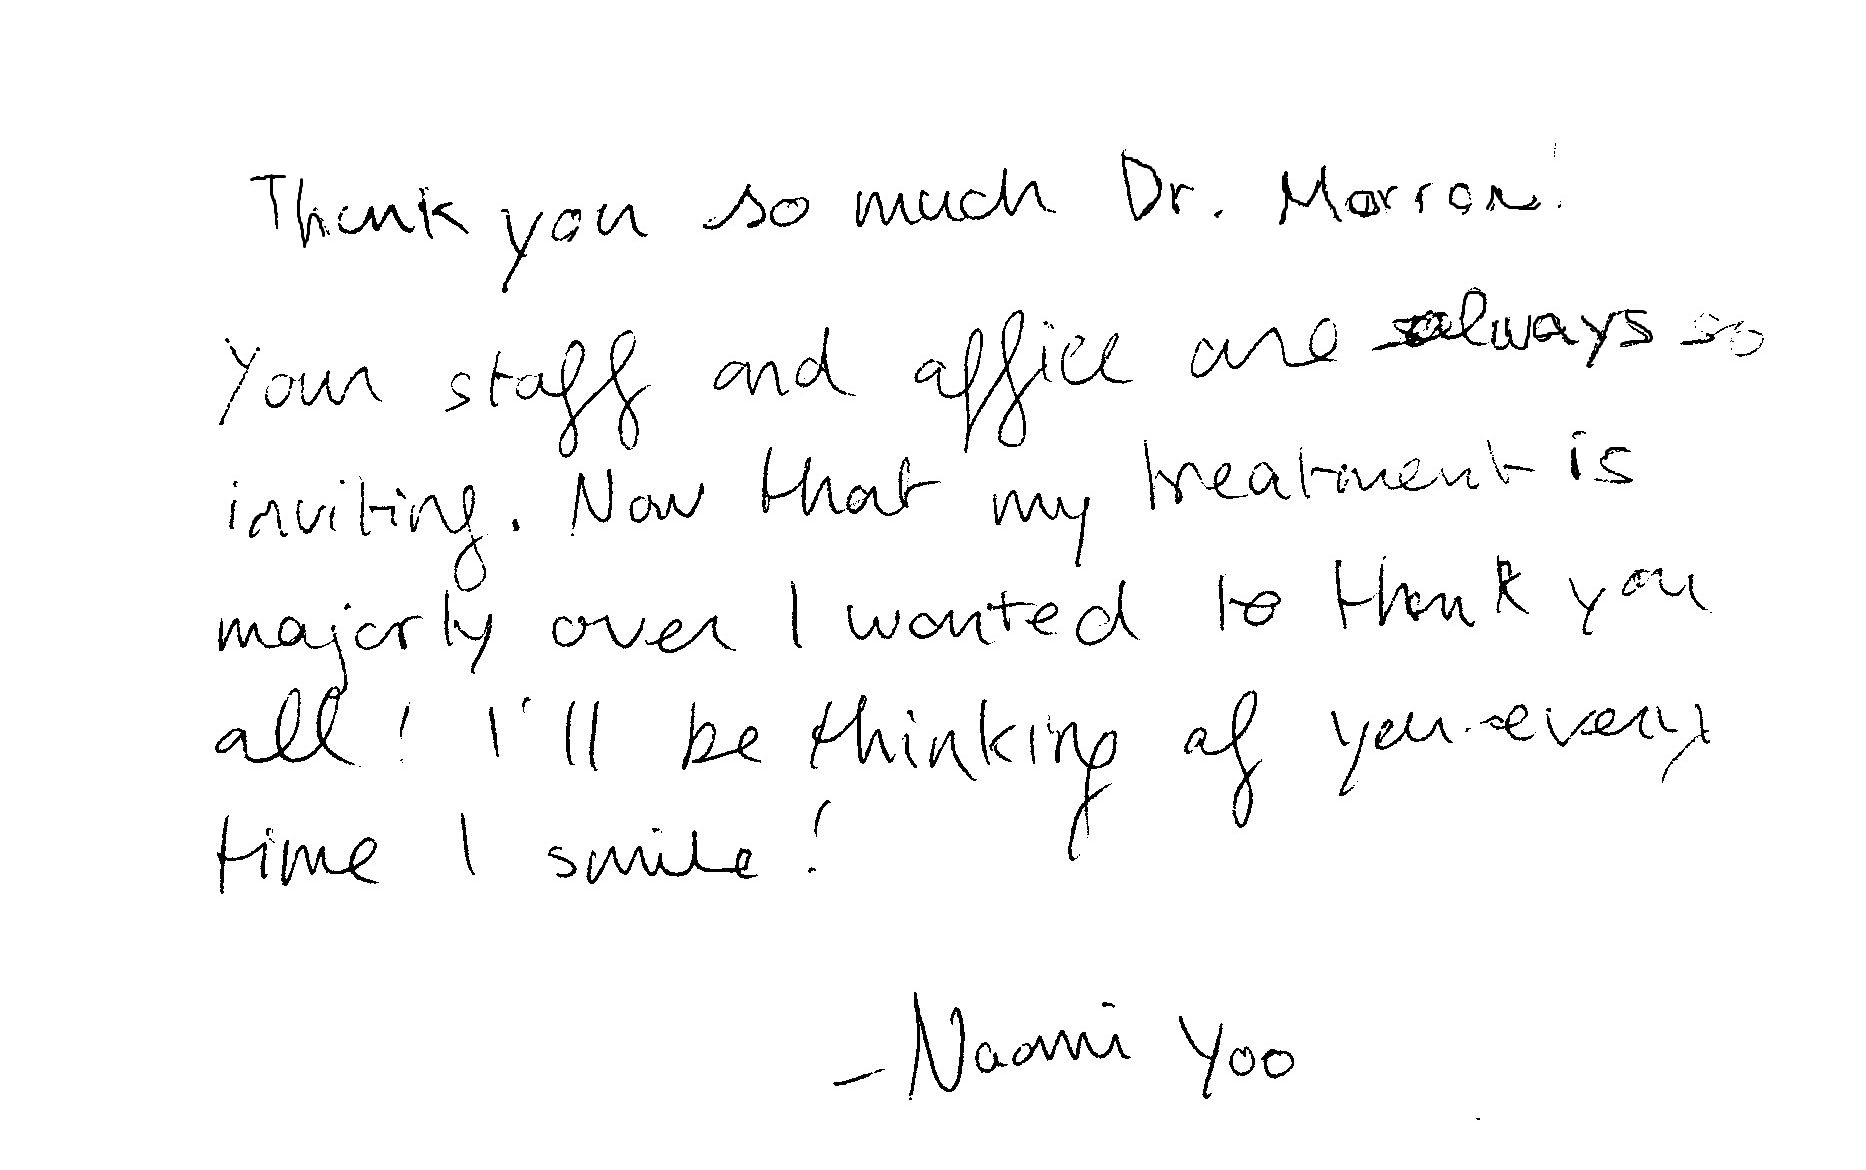 Thank you so much Dr. Marron!
Your staff and office are always so
inviting. Now that my treatment is
majorly over I wanted to thank you
all! I'll be thinking of you every
time I smile!
- Naomi Yoo